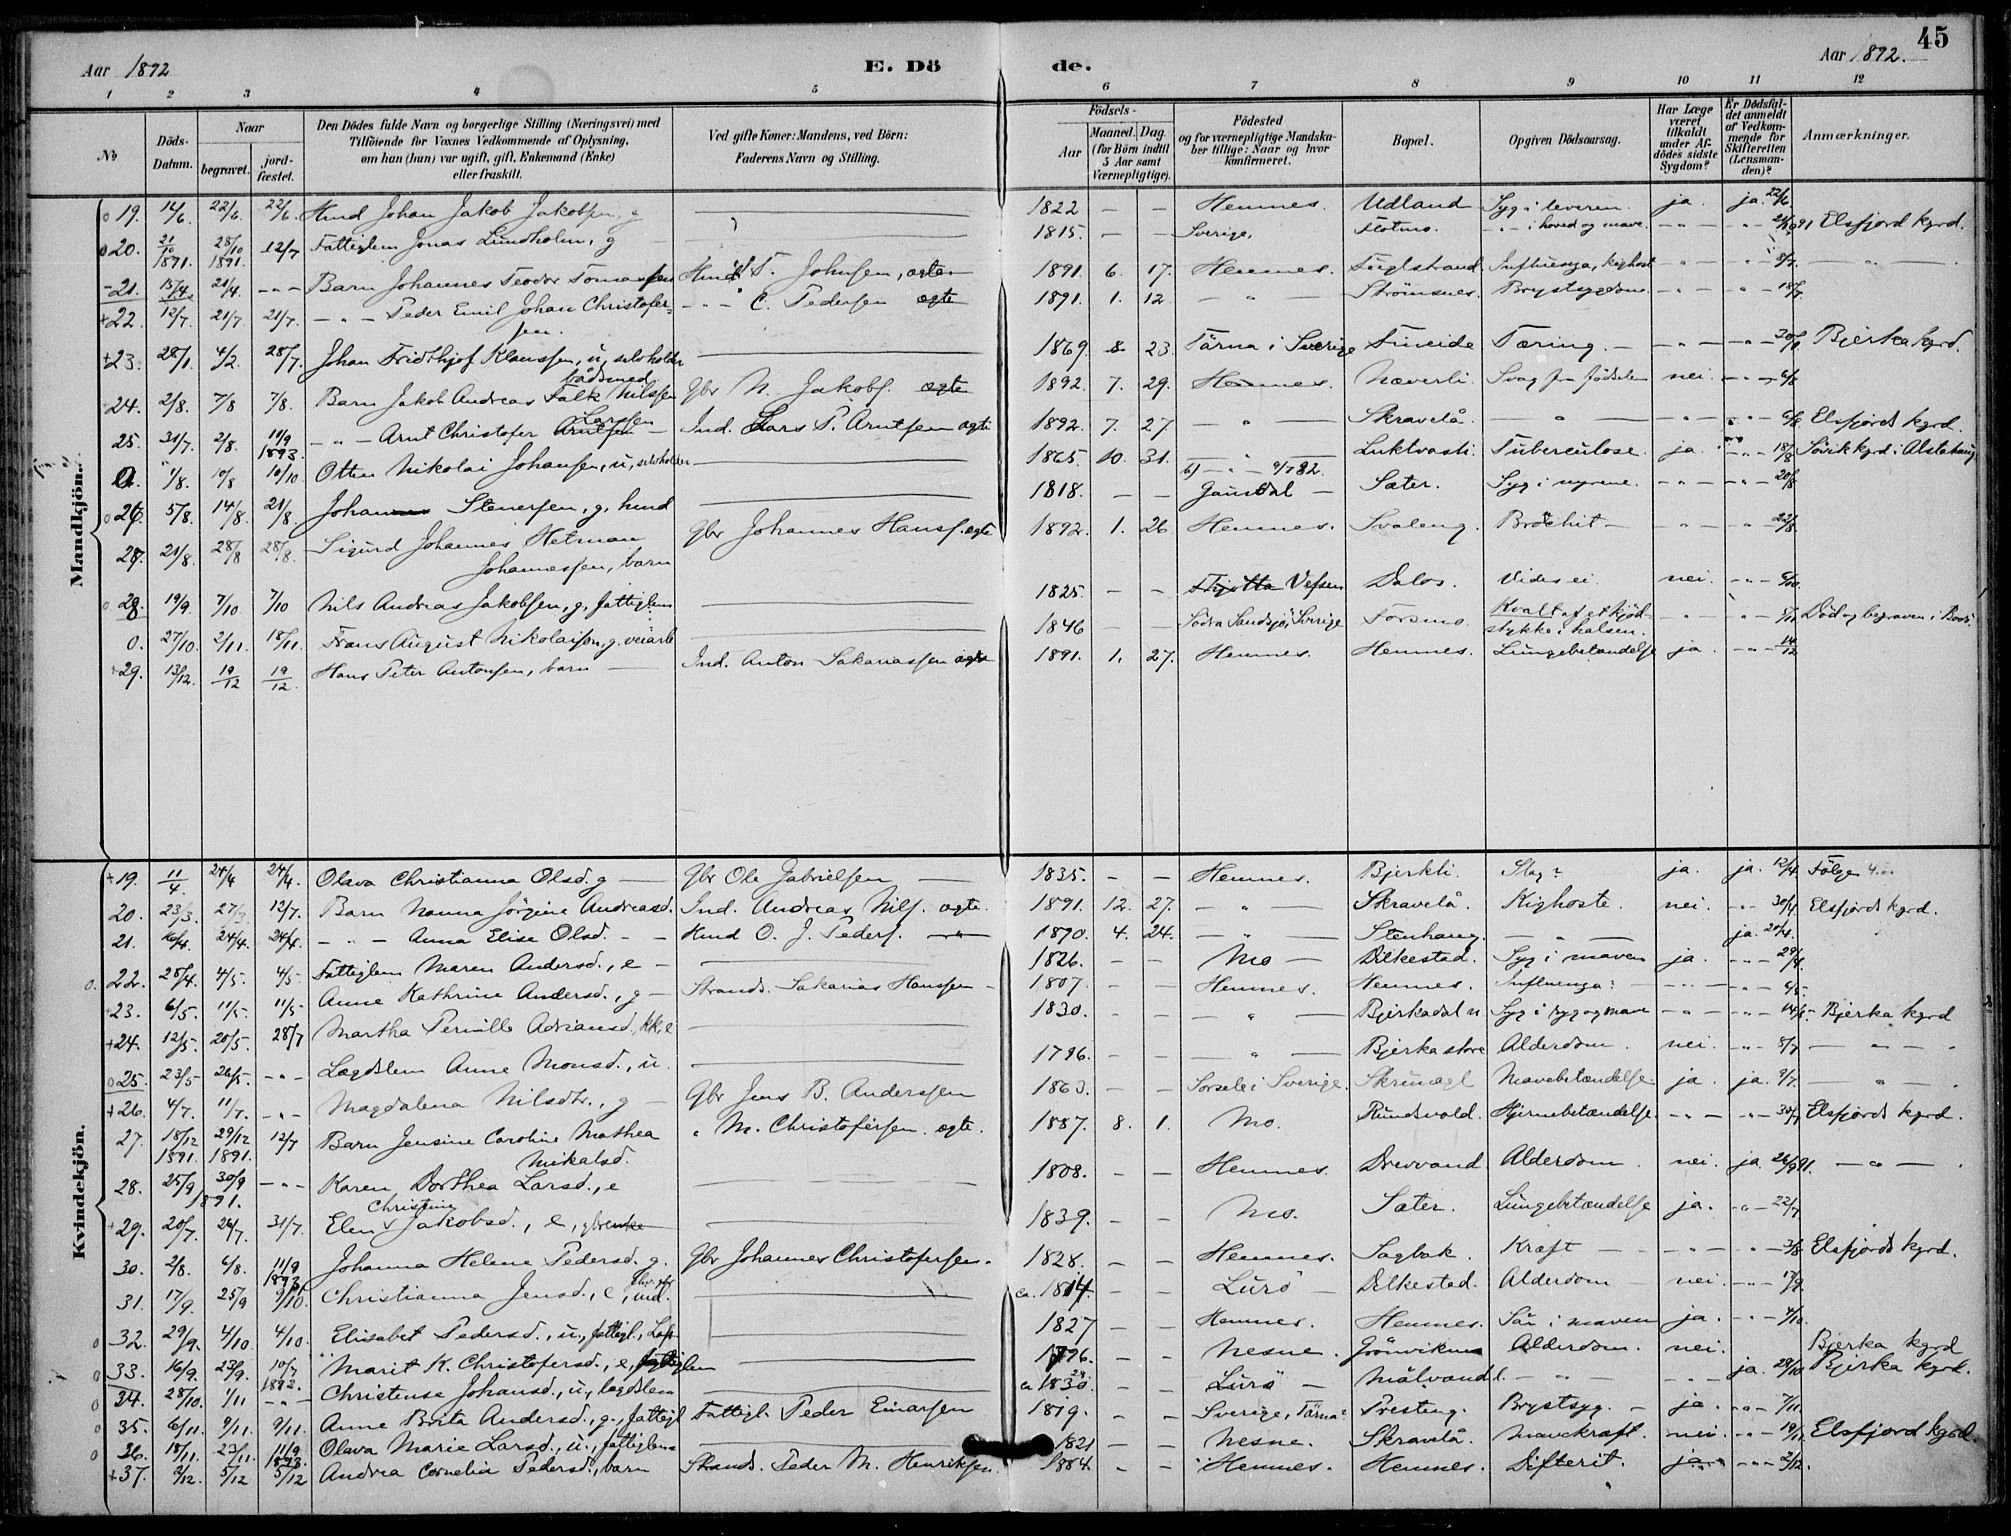 45
Aar 1892
E. Dö
de.
Aar 1892.
1 2 3 4 5 6 7 8 9 10 11 12
No
Döds-Datum.
Naar
begravet.
jord-fæstet.
Den Dödes fulde Navn og borgerlige Stilling (Næringsvei) med
Tilföiende for Voxnes Vedkommende af Oplysning,
om han (hun) var ugift, gift, Enkemand (Enke)
eller fraskilt.
Ved gifte Koner: Mandens, ved Börn:
Faderens Navn og Stilling.
Födsels-
Aar
Maaned. Dag.
(for Börn indtil
5 Aar samt
Værnepligtige).
Födested
og for værnepligtige Mandska-
ber tillige: Naar og hvor
konfirmeret.
Bopæl.
Opgiven Dödsaarsag.
Har Læge
været
tilkaldt
under Af-
dödes sidste
Sygdom?
Er Dödsfal-
det anmeldt
af Vedkom-
mende for
Skifteretten
(Lensman-
den)?
Anmærkninger.
Mandkjön.
19. 14/6. 22/6. 22/6. Husmd Johan Jakob Jakobsen, g 1822 — — Hemnes. Udland Syg i leveren. ja. ja. 22/6
20. 21/10 1891. 28/10 1891. 12/7 Fattiglem Jonas Lundholm, g 1815. — — Sverige. Flotmo. -"- i hoved og mave. Elsfjord kgrd.
21. 15/4 21/4. -"- Barn Johannes Teodor Tomassen Husmd T. Johnsen, ægte 1891. 6. 17. Hemnes. Fuglstrand Influenza, kighost
22. 12/7. 21/7 21/7. -"- Peder Emil Johan Christofer-
sen. -"- C. Pedersen ægte 1891. 1. 12. -"- Strömsnes. Brystsygdom 18/7
23. 28/1. 4/2. 28/7. Johan Fridthjof Klaussen, u, selvholder 1869. 8. 23. Tärna i Sverige Fineide Tæring. 30/1 Bjerka kgrd.
24. 2/8. 7/8 7/8. Barn Jakob Andreas Falk Nilssen Gbr N. Jakobs. ægte 1892. 7. 29. Hemnes. Næverli. Svag fra födselen nei. -"- 6/8
25. 31/7. 2/8. 10/9 1893. -"- Arnt Christofer Larssen Ind. Lars P. Arntsen ægte 1892. 7. 27 -"- Skravelå. -"- 6/8 Elsfjords kgrd.
0. 1/8. 10/8 10/10 Otten Nikolai Johansen, u, selvholder 1865. 10. 31. -"- Luktvasli. Tuberculose. ja. 18/8 Søvik kgrd i Alstahaug
26. 5/8. 14/8. 21/8. Johan Stenersen, g, husmd 1818. — — Gausdal — Sæter. Syg i nyrene. 20/8
27. 21/8. 28/8 28/8. Sigurd Johannes Hetman
Johannessen, barn Gbr Johannes Hanss. ægte 1892. 1. 26 Hemnes. Svaleng. Bronchit 22/8
28. 19/9. 7/10 7/10 Nils Andreas Jakobsen, g, fattiglem 1825. — — Vefsen Dalos. Vides ei. nei. -"- 6/10.
0. 27/10. 2/11. 18/11. Frans August Nikolaisen, g. veiarb 1846 — Södra Sandsjö, Sverige Forsmo. Kvalt af et kjöd-
stykke i halsen. Död og begraven i Bodö.
29. 13/12. 19/12 19/12. Hans Peter Antonsen, barn Ind. Anton Sakariassen ægte 1891. 1. 27. Hemnes. Hemnes. Lungebetændelse ja. -"- 14/12
Kvindekjön.
19. 11/4. 24/4 24/4. Olava Christianna Olsd. g Gbr Ole Gabrielsen 1835. — — Hemnes. Bjerkli. Slag? ja. ja. 12/4 Fölge
20. 23/3. 27/3. 12/7. Barn Nanna Jörgine Andreasd. Ind. Andreas Nils. ægte. 1891. 12. 27. -"- Skravelå. Kighoste. nei. -"- 30/4 Elsfjords kgrd.
21. 16/4. 24/4. 24/4. -"- Anna Elise Olsd. Husmd O. J. Peders. -"- 1890. 4. 24. -"- Stenhaug. -"- ja. 20/4.
22. 28/4. 4/5. 4/5. Fattiglem Maren Andersd., e 1826. — — Mo — Dilkestad. Syg i maven ja. -"- 29/4.
23. 6/5. 11/5. 11/5 Anne Kathrine Andersd., g Strands. Sakarias Hanssen 1807. — — Hemnes. Hemnes. Influenza? -"- 6/5.
24. 12/5. 20/5. 28/7 Martha Pernille Adriansd., kk, e 1830. — — -"- Bjerkadal n Syg i ryg og mave -"- 14/5 Bjerka kgrd
25. 23/5 26/5. -"- Lægdslem Anne Monsd., u. 1796. — — -"- Bjerka store Alderdom. nei. -"- 8/7 -"-
26. 4/7. 11/7. -"- Magdalena Nilsdtr., g Gbr Jens B. Anderssen 1863. — — Sorsele i Sverige. Mavebetændelse ja. ja. 9/7. -"-
27. 18/12 1891. 29/12 1891. 12/7 Barn Jensine Caroline Mathea
Mikalsd. " M. Christofersen ægte. 1887. 8. 1. Mo. Rundvold. Hjernebetændelse. -"- 30/7 Elsfjords kgrd.
28. 25/9. 30/9 1891. -"- Karen Dorthea Larsd., e 1808. — — Hemnes. Drevvand. Alderdom. nei. ja. 26/9 91. -"-
29. 20/7. 24/7. 31/7. Elen Christine Jakobsd., e, gbrenke 1839. — — Mo. Sæter. Lungebetændelse ja. -"- 22/7
30. 2/8. 6/8. 11/9 1893 Johanna Helene Pedersd. g. Gbr Johannes Christofersen. 1828. — — Hemnes. Sagbak Kræft -"- 3/8 Elsfjords kgrd.
31. 17/9. 25/9 9/10. Christianna Jensd., e, ind. ca. 1814. — — Lurö Dilkestad. Alderdom nei. -"- 17/9.
32. 29/9. 4/10. 4/10. Elisabet Pedersd., u., fattigl., Lap 1827 Hemnes. Hemnes. Sår i maven ja. -"- 4/10.
33. 16/9. 23/9. 10/7 1892. Marit K. Christofersd., e, fattiglem 1796. — — Nesne. Grönviknes Alderdom. nei. Bjerka kgrd
34. 28/10. 1/11 -"- Christense Johansd., u., lægdslem ca 1830. — — Lurö — Målvand -"- ja. 28/10 Bjerka kgrd.
35. 6/11. 9/11. 9/11. Anne Brita Andersd., g., fattigl Fattigl. Peder Einarsen 1819. — — Sverige, Tärna? Presteng. Brystsyg. ja. -"- 7/11.
36. 18/11. 23/11. 11/9 1893. Olava Marie Larsd., u., fattiglem 1821 — — Nesne. Skravlå. Mavekræft. nei. -"- 19/11. Elsfjord kgrd.
37. 2/12. 5/12 5/12 Andrea Cornelia Pedersd., barn Strands. Peder M. Henriksen. 1884. — — Hemnes. Hemnes. Difterit. ja. -"- 2/12.